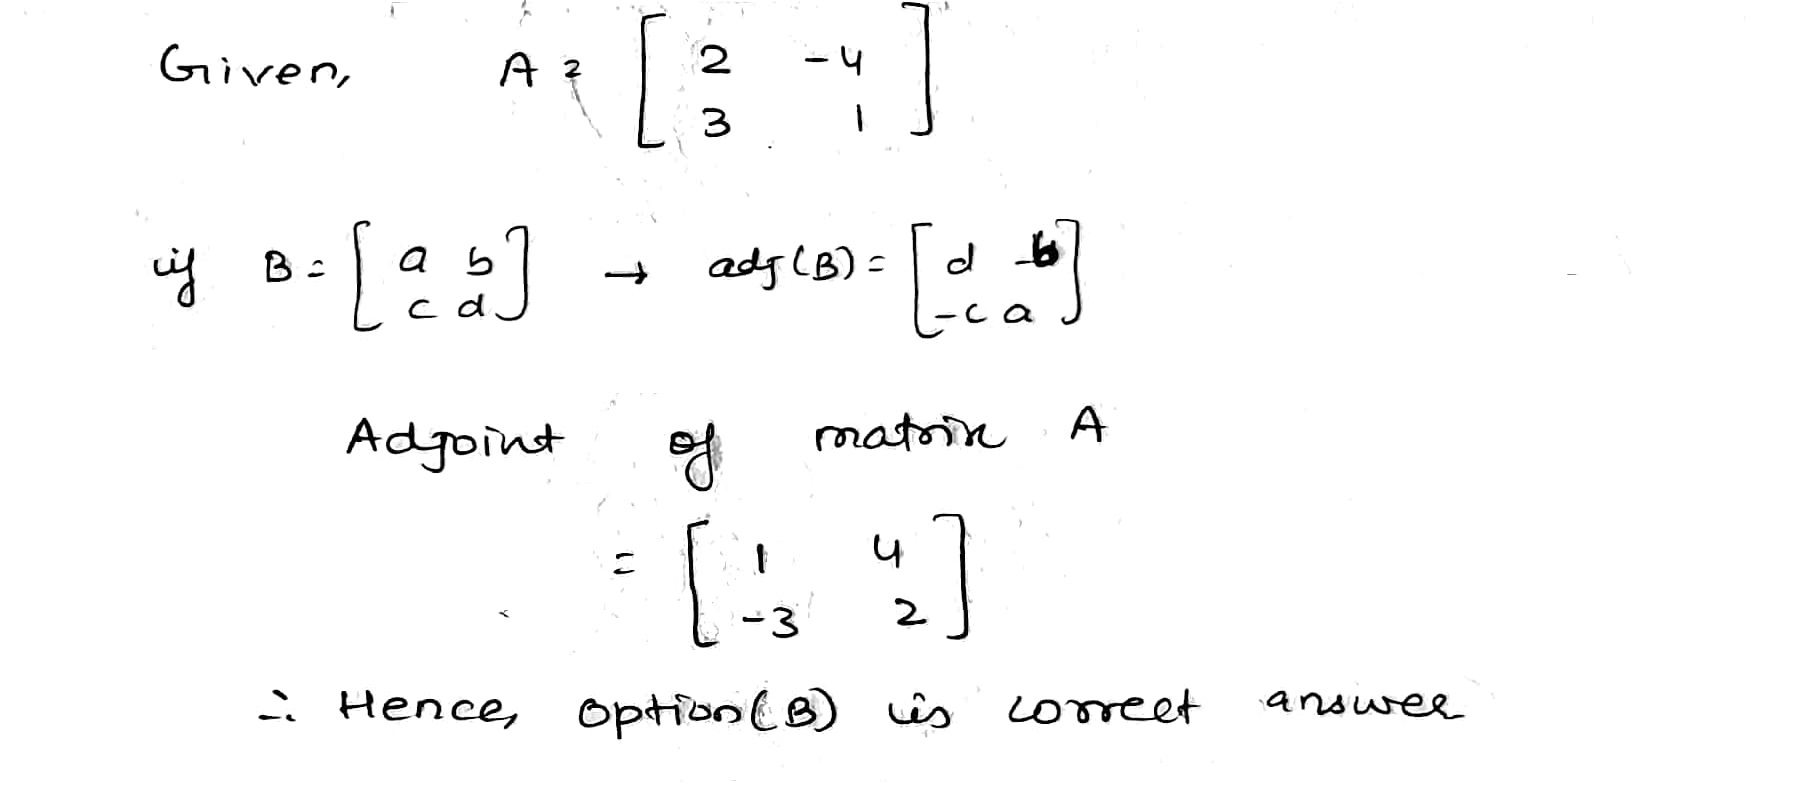 Given, A = [ 2 -4
3 1 ]
if B = [ a b
c d ] → adj(B) = [ d -b
-c a ]
Adjoint of matrix A
= [ 1 4
-3 2 ]
∴ Hence, option(B) is correct answer